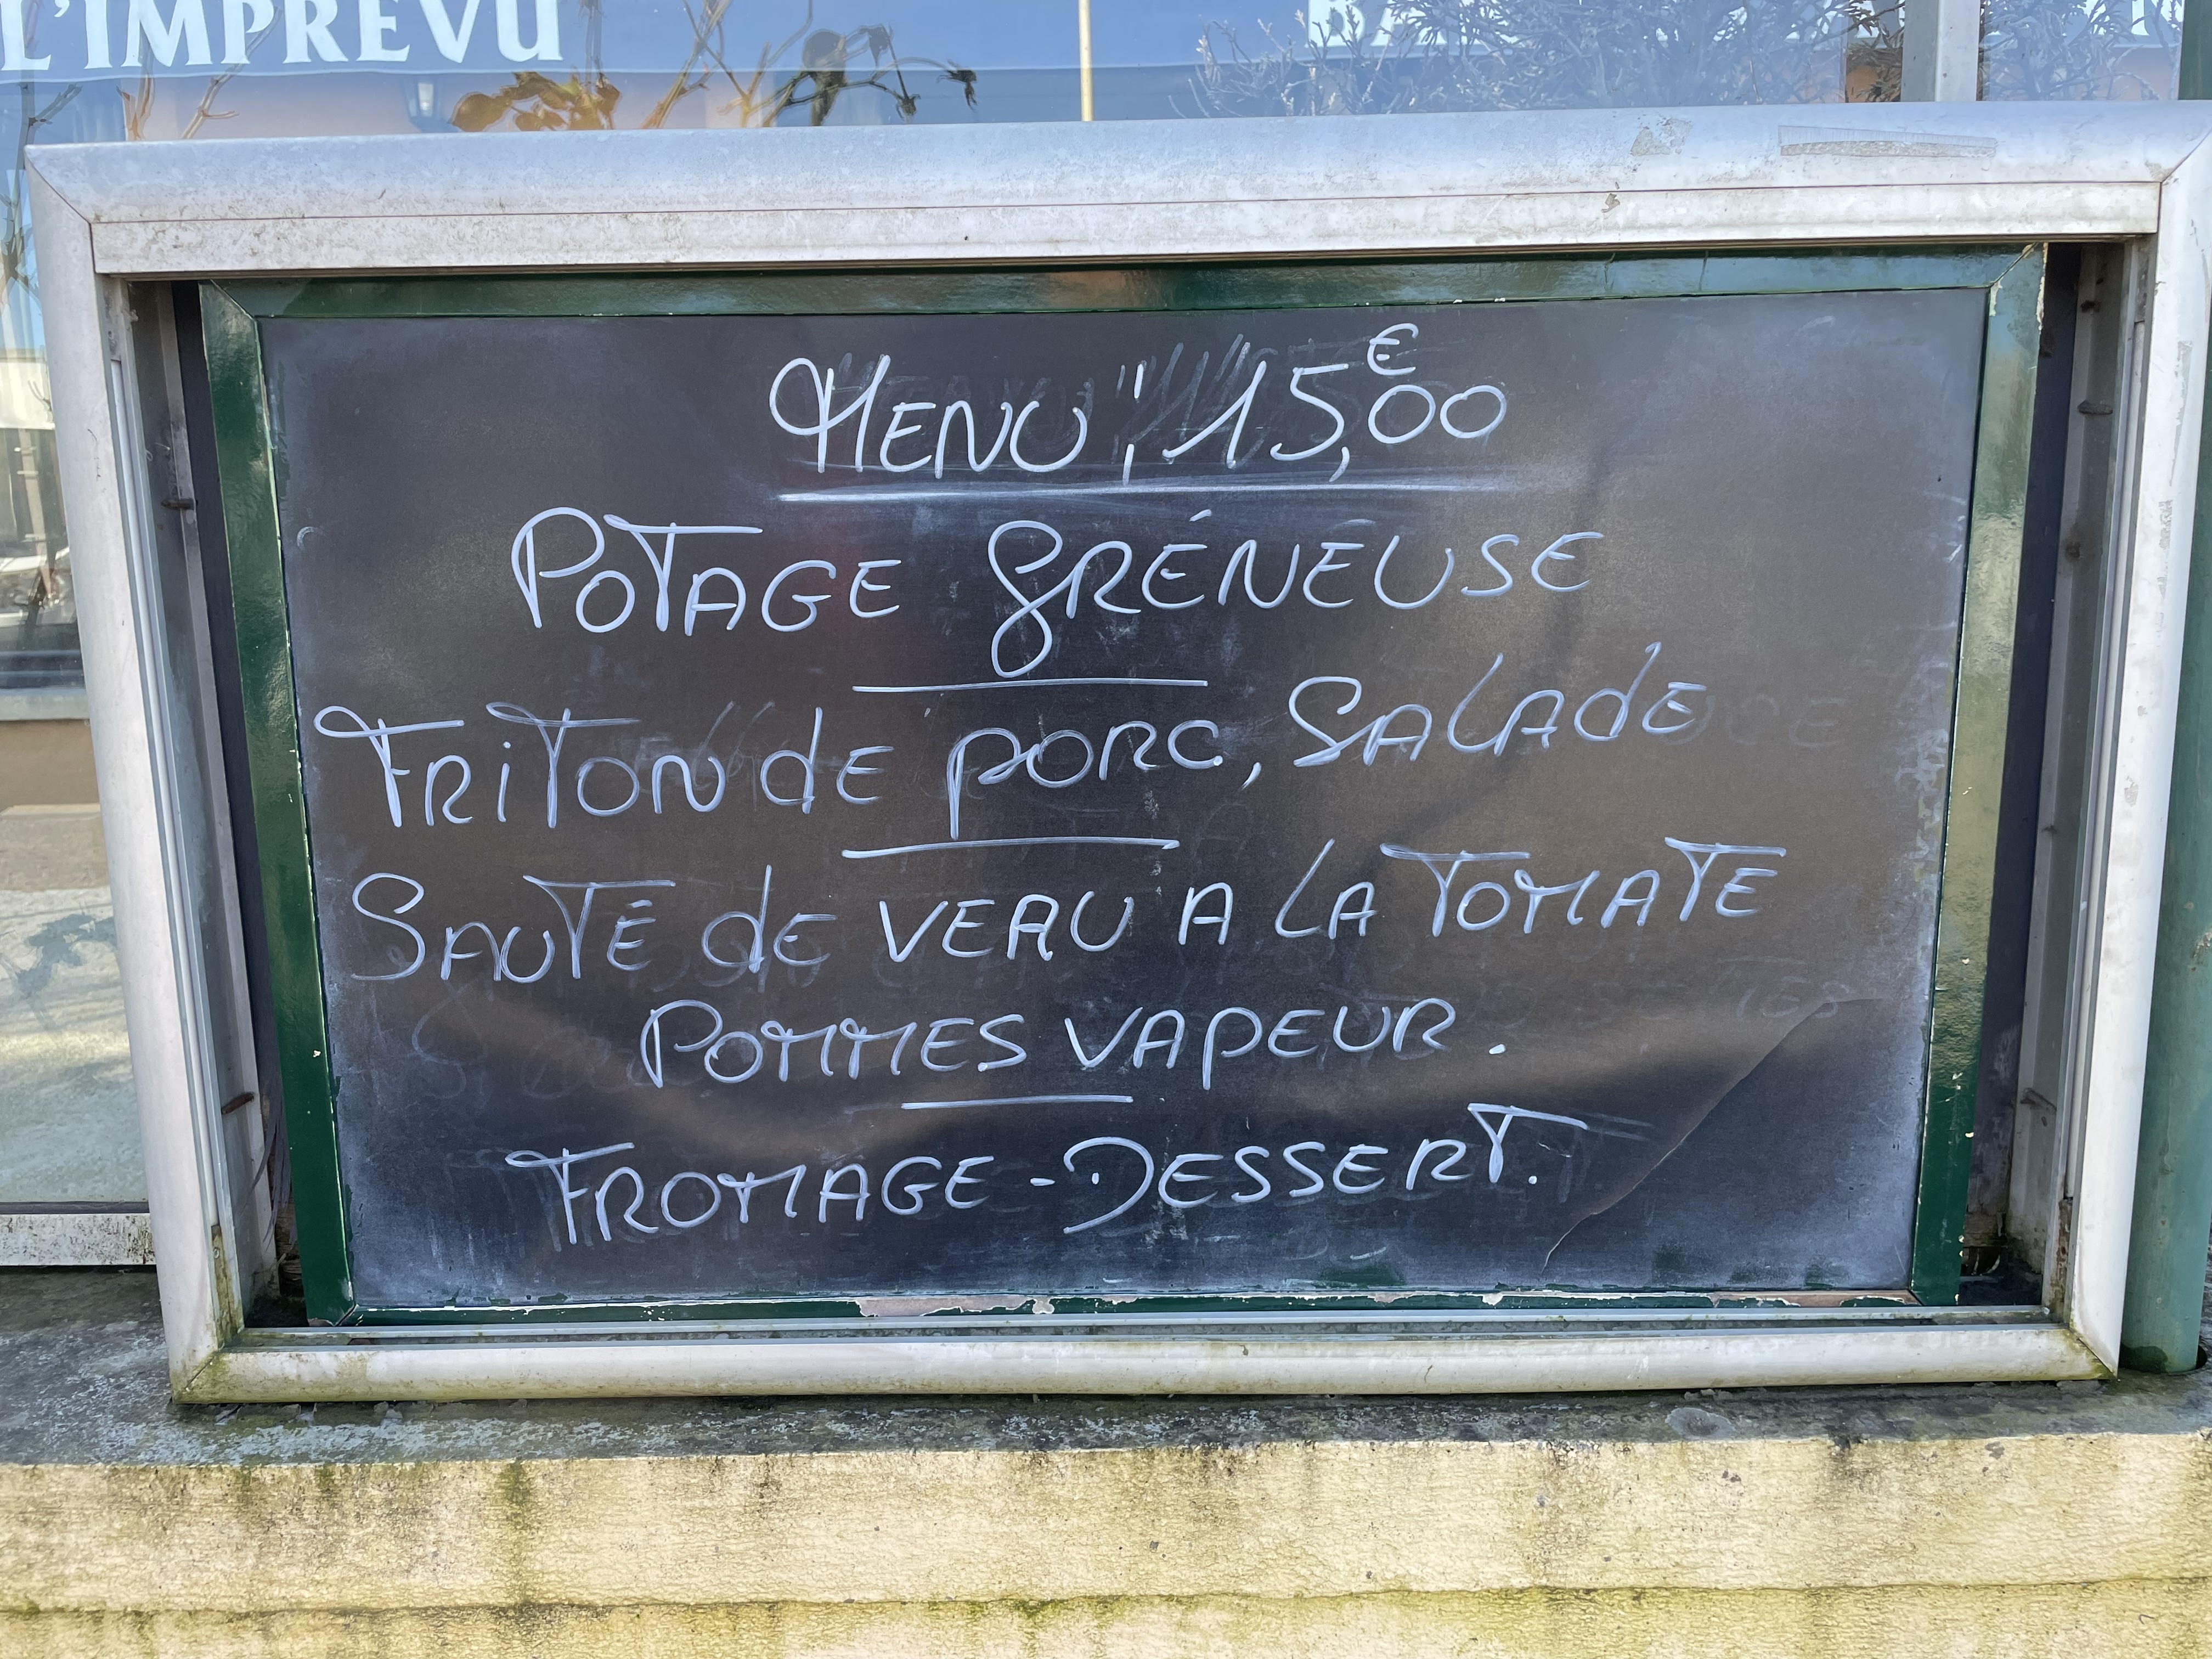 L'IMPREVU
MENU " 15,00€
POTAGE GRÉNEUSE
FRITON DE PORC, SALADE
SAUTÉ DE VEAU A LA TOMATE
POMMES VAPEUR.
FROMAGE - DESSERT.